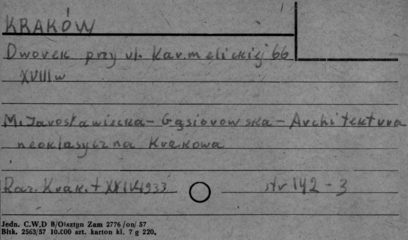 KRAKÓW
Dworek przy ul. Karmelickiej 66
XVIII w
M. Jarosławiecka - Gąsiorowska - Architektura
neoklasyczna Krakowa
Roz. Krak. t XXIV 1933 str 142 - 3
Jedn. C.W.D B/Olsztyn Zam 2776/on/57
Bltk. 2563/57 10.000 szt. karton kl. 7 g 220.